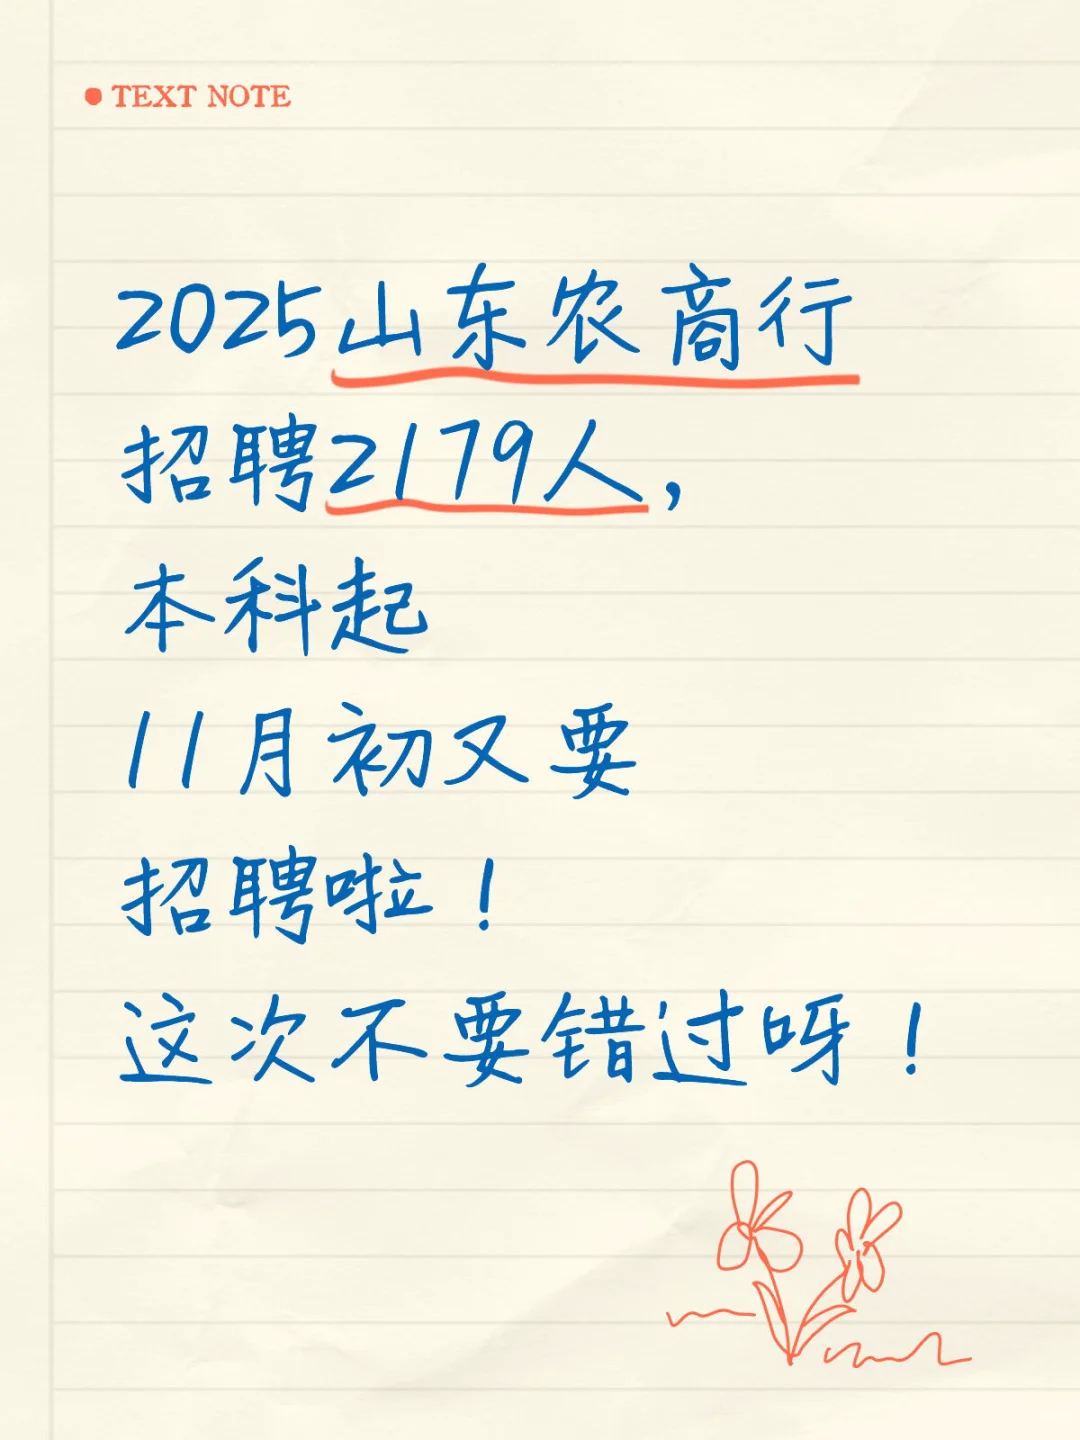 TEXT NOTE
2025山东农商行
招聘2179人，
本科起
11月初又要
招聘啦！
这次不要错过呀！